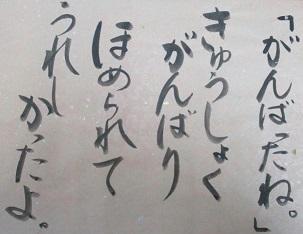 「がんばったね。」
きゅうしょく
がんばり
ほめられて
うれし
かったよ。